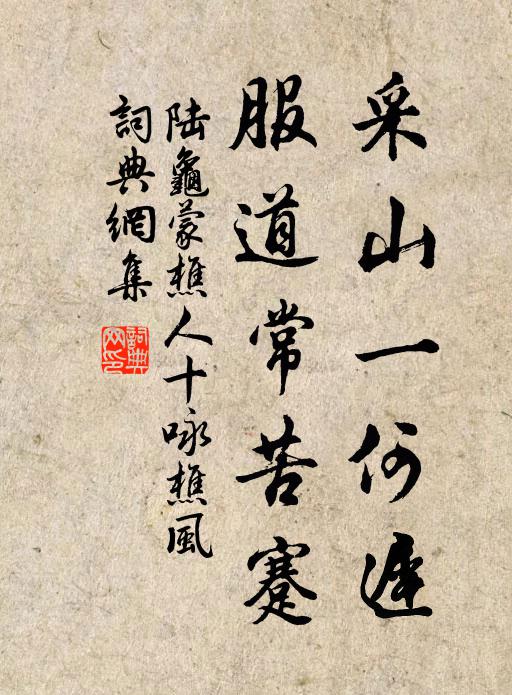 采山一何遲
服道常苦蹇
陆龜蒙樵人十咏樵風
詞典網集
詞典
网印